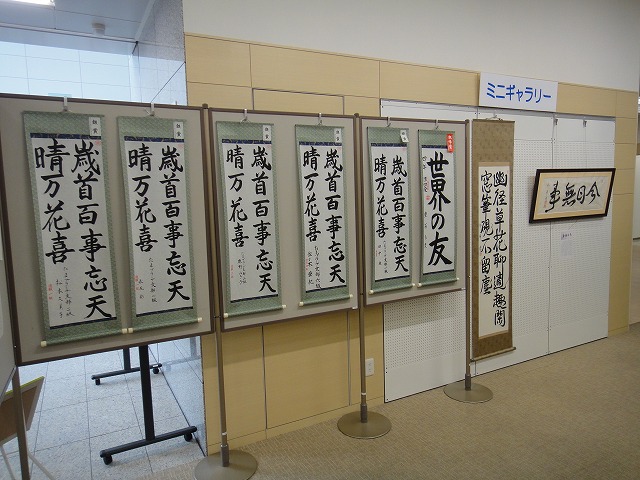 ミニギャラリー
歳首百事忘天
晴万花喜
歳首百事忘天
晴万花喜
歳首百事忘天
晴万花喜
歳首百事忘天
晴万花喜
歳首百事忘天
晴万花喜
世界の友
幽径草花聊適趣閑
窓筆硯不留塵
今日無事